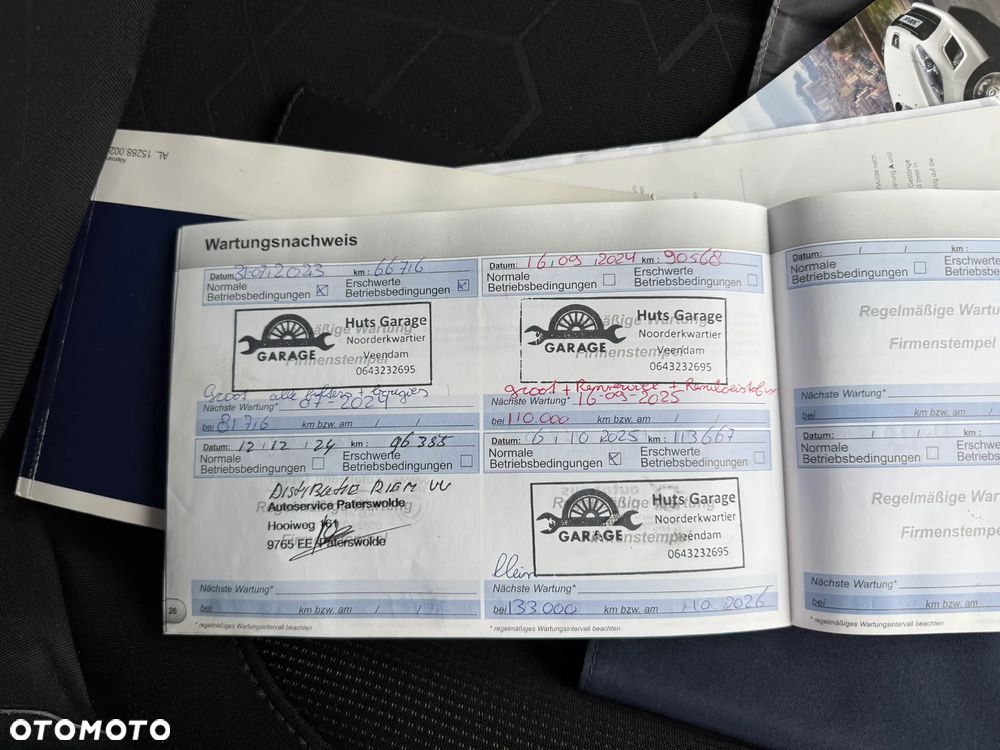 AL. 15288.002
Wartungsnachweis
Datum: 31.07.2023 km: 66716
Normale Betriebsbedingungen
Erschwerte Betriebsbedingungen
GARAGE
Huts Garage
Noorderkwartier
Veendam
0643232695
Groot alle filters +
Nächste Wartung* 07-2024
bei 81716 km bzw. am / /
Datum: 16.09.2024 km: 90568
Normale Betriebsbedingungen
Erschwerte Betriebsbedingungen
GARAGE
Huts Garage
Noorderkwartier
Veendam
0643232695
groot + Remservice + Remvloeistof
Nächste Wartung* 16-09-2025
bei 110.000 km bzw. am / /
Datum: 12.12.24 km: 96385
Normale Betriebsbedingungen
Erschwerte Betriebsbedingungen
Distributie Riem VV
Autoservice Paterswolde
Hooiweg 161
9765 EE Paterswolde
Nächste Wartung*
bei km bzw. am / /
* regelmäßiges Wartungsintervall beachten
26
Datum: 6.10.2025 km: 113667
Normale Betriebsbedingungen
Erschwerte Betriebsbedingungen
GARAGE
Huts Garage
Noorderkwartier
Veendam
0643232695
klein
Nächste Wartung*
bei 133.000 km bzw. am 10.2026
* regelmäßiges Wartungsintervall beachten
Datum: / / km:
Normale Betriebsbedingungen
Regelmäßige Wartu
Firmenstempel
Nächste Wartung*
bei km bzw. am /
Datum: / / km:
Normale Betriebsbedingungen
Regelmäßige War
Firmenstempel
Nächste Wartung*
bei km bzw. am /
* regelmäßiges Wartungsintervall beachten
OTOMOTO